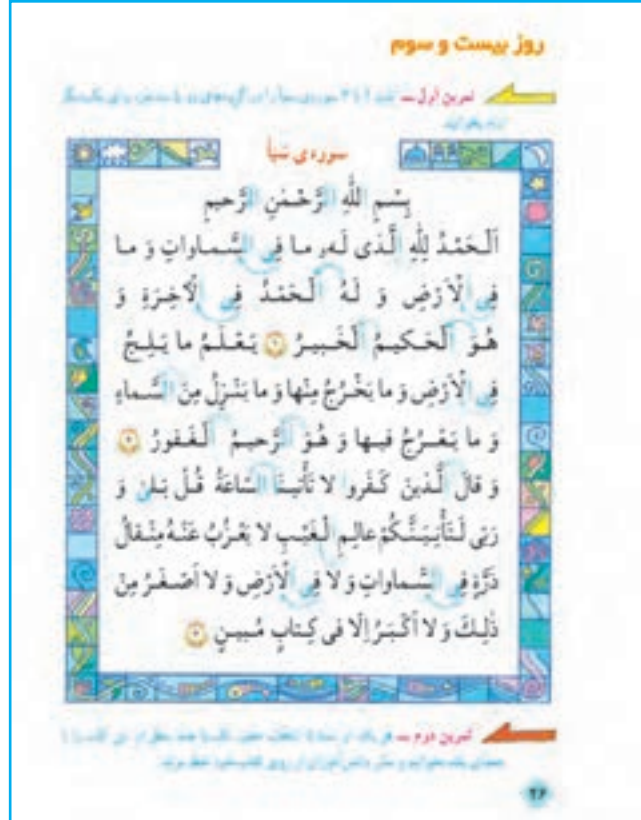 روز بیست و سوم
تمرین اول ــ
سوره‌ی سَبَأ
بِسْمِ اللّٰهِ الرَّحْمٰنِ الرَّحیمِ
اَلْحَمْدُ لِلّٰهِ الَّذی لَهُ ما فِی السَّماواتِ وَ ما
فِی الْاَرْضِ وَ لَهُ الْحَمْدُ فِی الْآخِرَةِ وَ
هُوَ الْحَکیمُ الْخَبیرُ ۱ یَعْلَمُ ما یَلِجُ
فِی الْاَرْضِ وَ ما یَخْرُجُ مِنْها وَ ما یَنْزِلُ مِنَ السَّماءِ
وَ ما یَعْرُجُ فیها وَ هُوَ الرَّحیمُ الْغَفورُ ۲
وَ قالَ الَّذینَ کَفَروا لا تَأْتینَا السّاعَةُ قُلْ بَلیٰ وَ
رَبّی لَتَأْتِیَنَّکُمْ عالِمِ الْغَیْبِ لا یَعْزُبُ عَنْهُ مِثْقالُ
ذَرَّةٍ فِی السَّماواتِ وَ لا فِی الْاَرْضِ وَ لا اَصْغَرُ مِنْ
ذٰلِکَ وَ لا اَکْبَرُ اِلّا فی کِتابٍ مُبینٍ
تمرین دوم ــ
۲۶